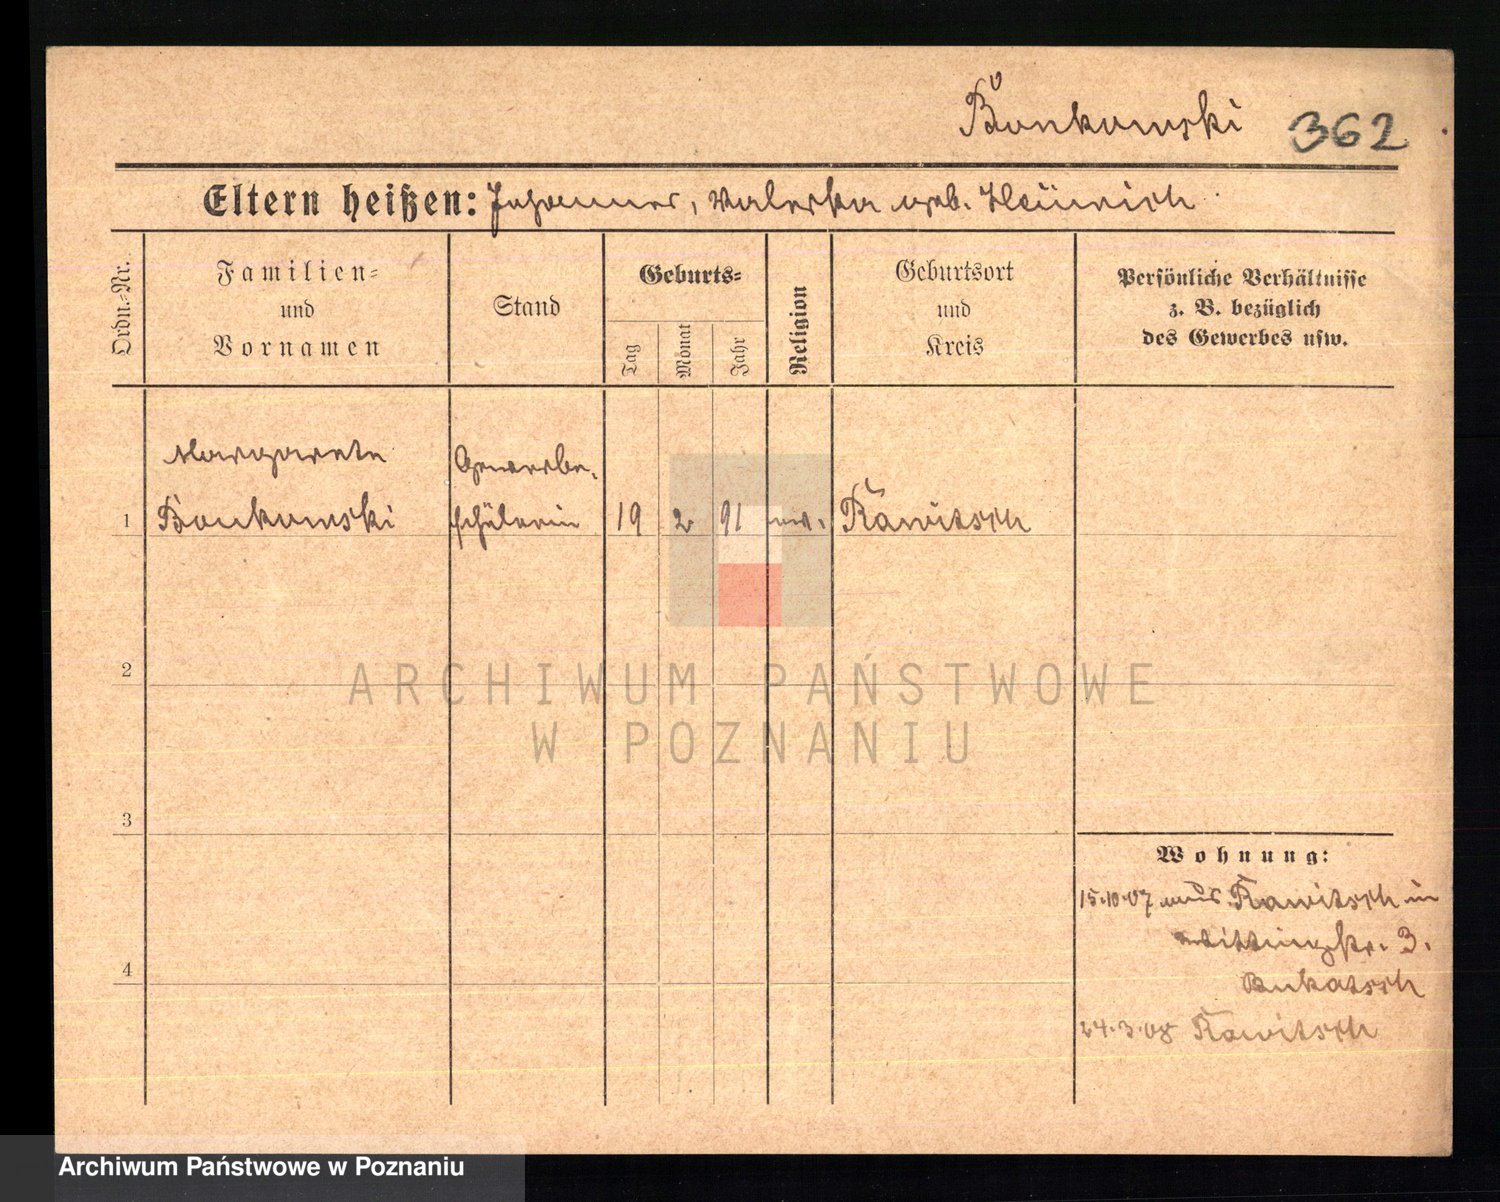 Bonkowski 362
Eltern heißen: Johannes, Valeska geb. Heinrich
Ordn.-Nr.
Familien-
und
Vornamen
Stand
Geburts-
Tag
Monat
Jahr
Religion
Geburtsort
und
Kreis
Persönliche Verhältnisse
z. B. bezüglich
des Gewerbes usw.
Margarete Gewerbe-
1 Bonkowski schülerin 19 2 91 ev. Rawitsch
2
3
4
Wohnung:
15.10.07 aus Rawitsch in
Wittingstr. 3.
Bukatsch
24.3.08 Rawitsch
ARCHIWUM PAŃSTWOWE
W POZNANIU
Archiwum Państwowe w Poznaniu